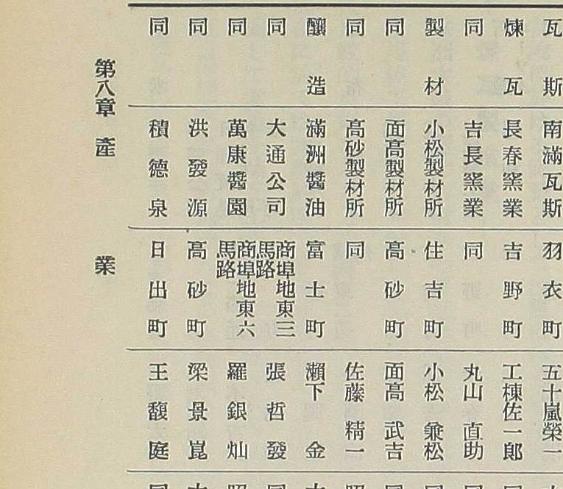 瓦斯 南滿瓦斯 羽衣町 五十嵐榮一
煉瓦 長春窯業 吉野町 工棟佐一郎
同 吉長窯業 同 丸山直助
製材 小松製材所 住吉町 小松兼松
同 面高製材所 高砂町 面高武吉
同 高砂製材所 同 佐藤精一
釀造 滿洲醬油 富士町 瀨下金
同 大通公司 商埠地東三馬路 張哲發
同 萬康醬園 商埠地東六馬路 羅銀灿
同 洪發源 高砂町 梁景崑
同 積德泉 日出町 王馥庭
第八章 產業